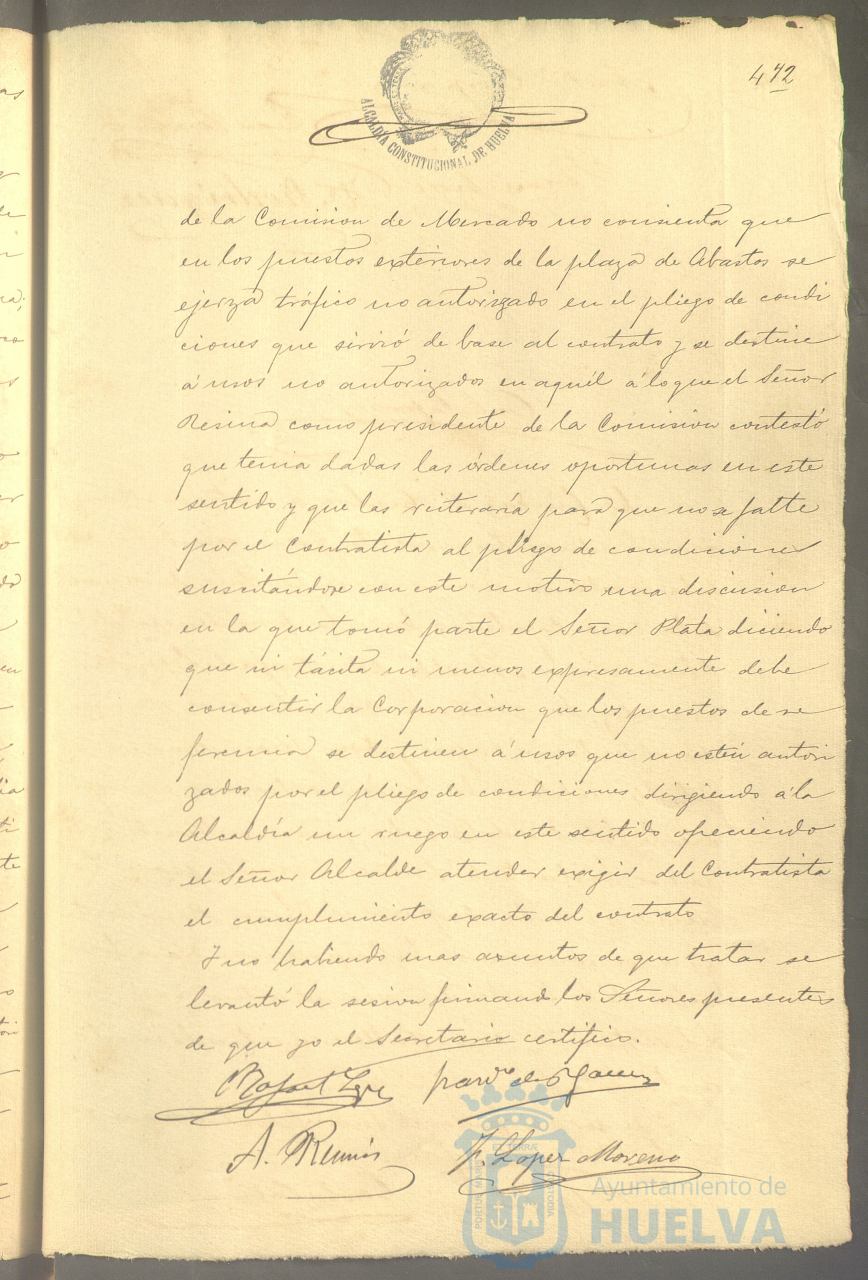 472
ALCALDÍA CONSTITUCIONAL DE HUELVA
de la Comision de Mercado no consienta que
en los puestos exteriores de la plaza de Abastos se
ejerza tráfico no autorizado en el pliego de condi
ciones que sirvió de base al contrato y se destine
á usos no autorizados en aquél á lo que el Señor
Resina como presidente de la Comision contestó
que tenia dadas las órdenes oportunas en este
sentido y que las reiteraría para que no se falte
por el Contratista al pliego de condiciones
suscitándose con este motivo una discusion
en la que tomó parte el Señor Plata diciendo
que ni tácita ni menos expresamente debe
consentir la Corporacion que los puestos de re
ferencia se destinen á usos que no estén autori
zados por el pliego de condiciones dirigiendo á la
Alcaldía un ruego en este sentido ofreciendo
el Señor Alcalde atender exigir del Contratista
el cumplimiento exacto del contrato
Y no habiendo mas asuntos de que tratar se
levantó la sesion firmando los Señores presentes
de que yo el Secretario certifico.
Rafael
A.
F. Lopez Moreno
PORTUS MARIS ET TERRÆ CUSTODIA
Ayuntamiento de
HUELVA